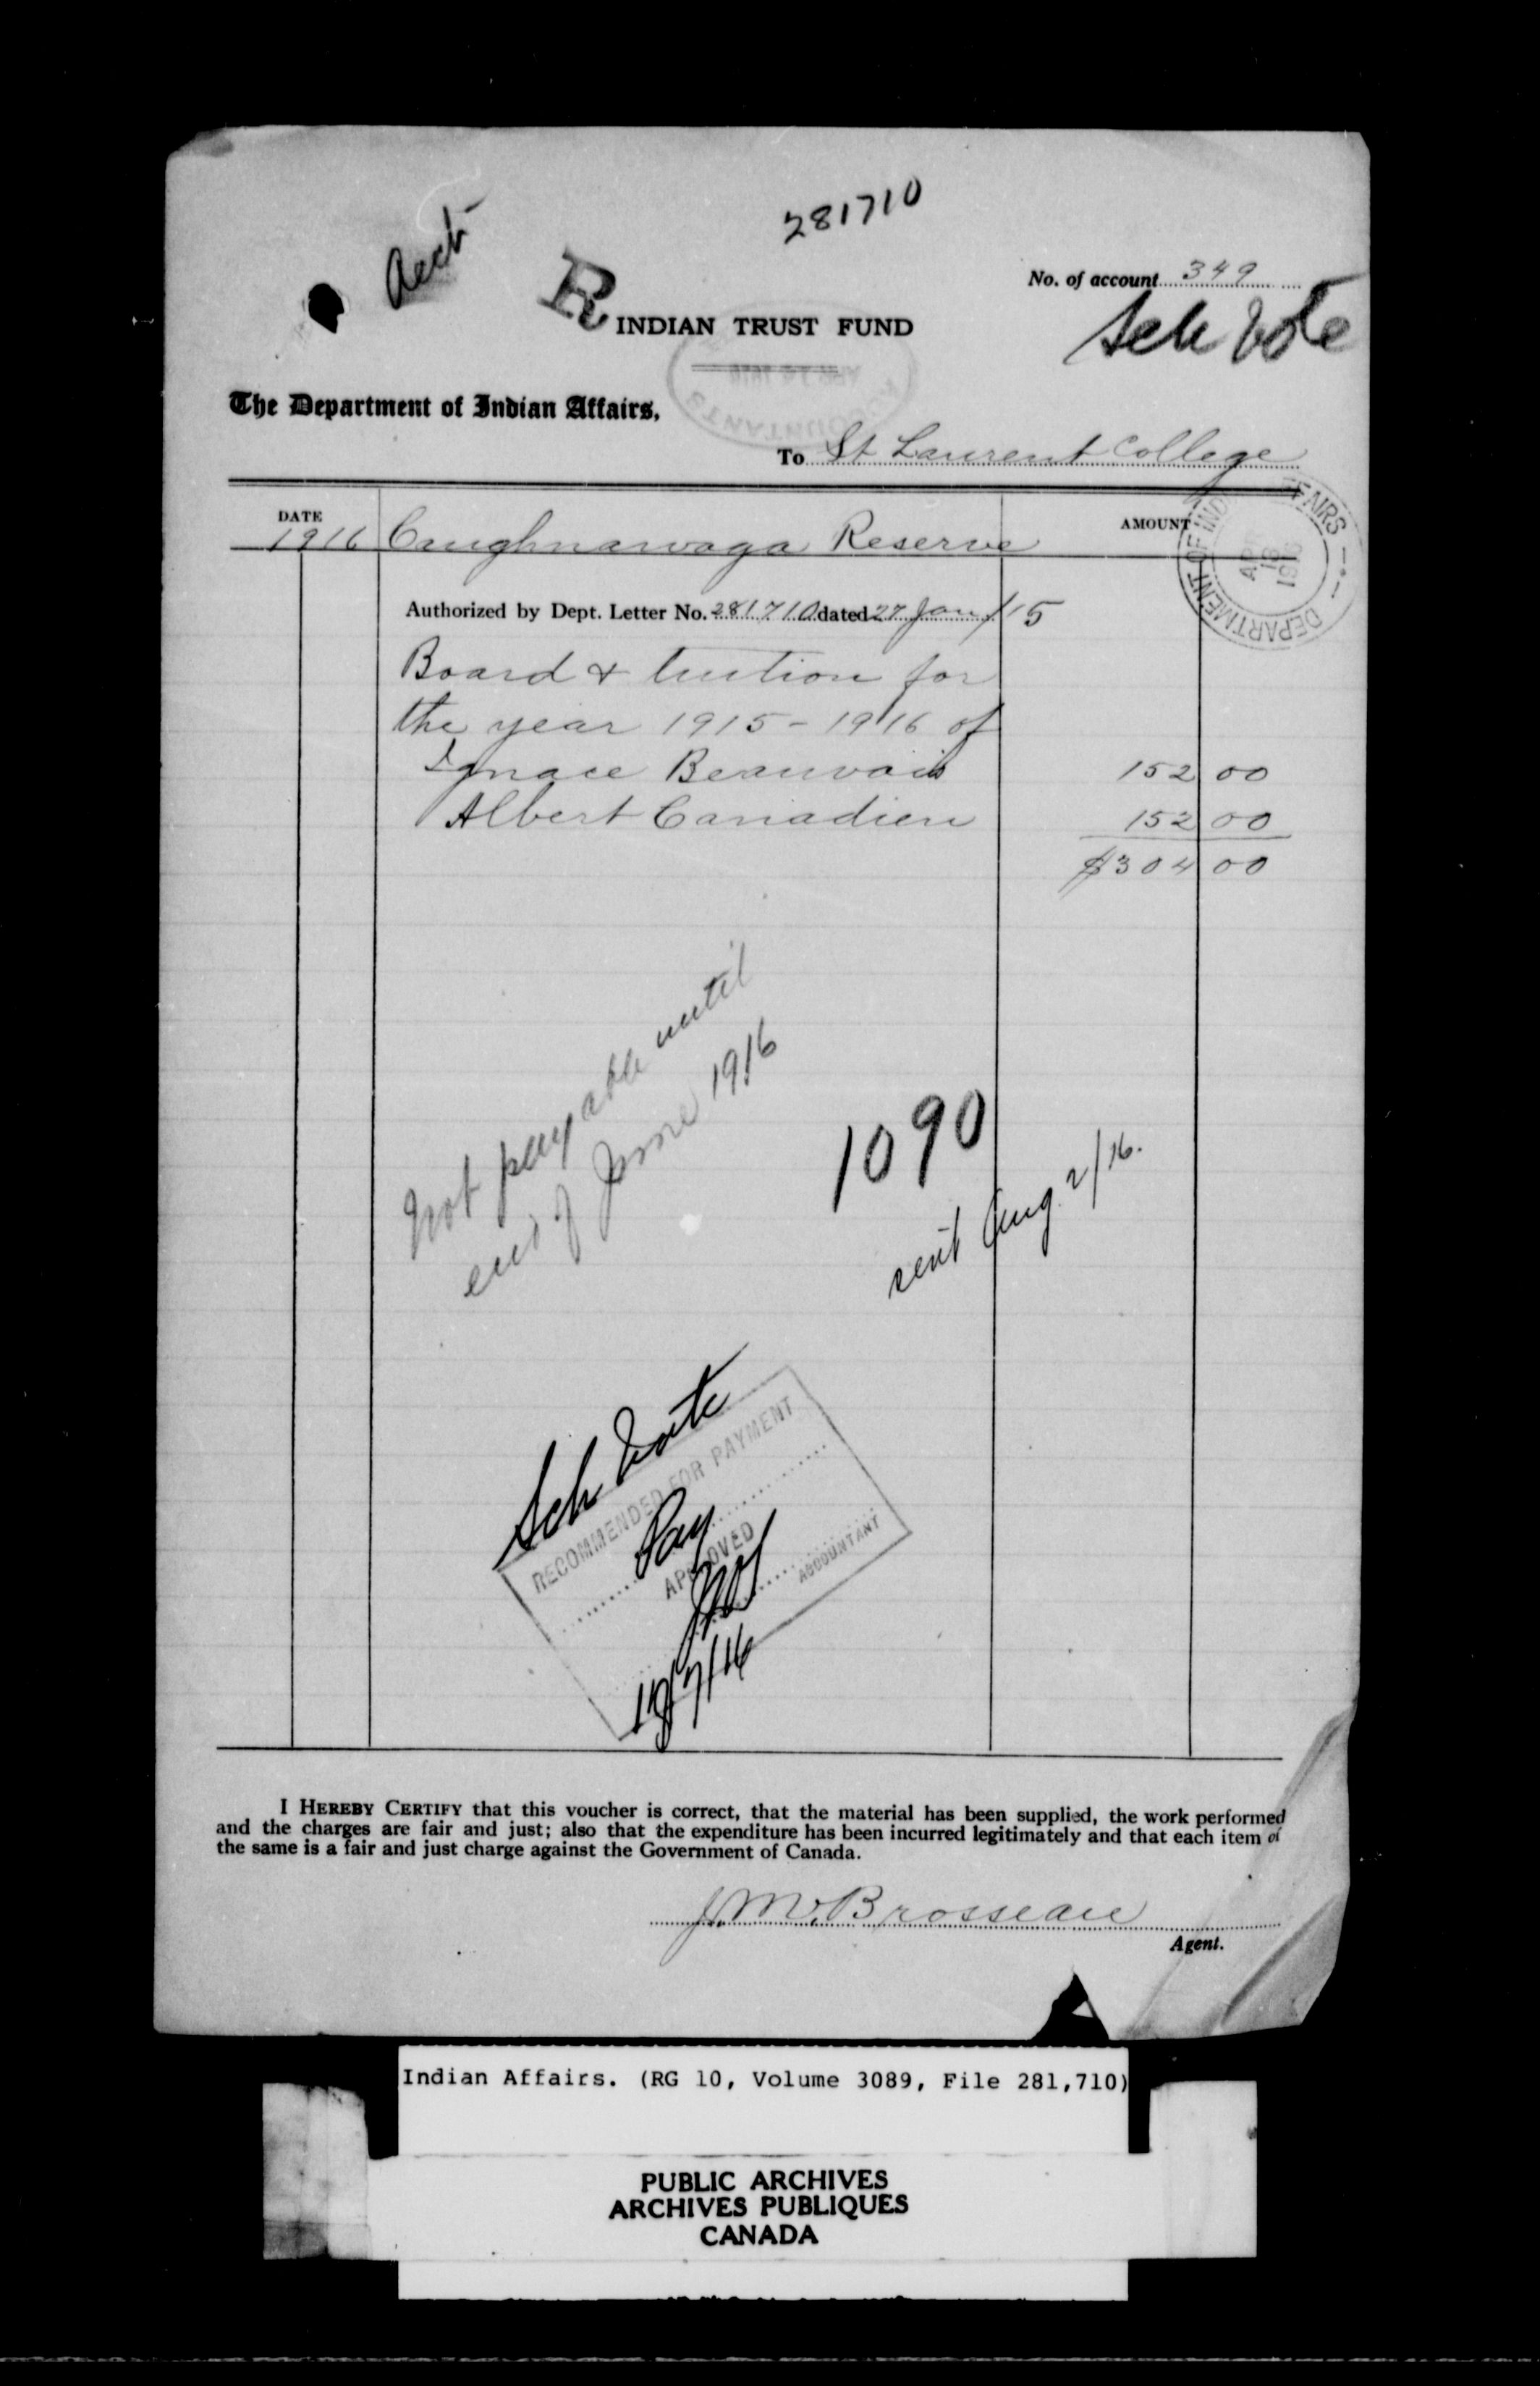 281710
Acct
R
No. of account 349
INDIAN TRUST FUND
Sch Vote
The Department of Indian Affairs,
ACCOUNTANTS
To St Laurent College
DATE
AMOUNT
1916 Caughnawaga Reserve
DEPARTMENT OF INDIAN AFFAIRS
APR
18
1916
Authorized by Dept. Letter No. 281710 dated 27 Jan/15
Board & tuition for
the year 1915-1916 of
Ignace Beauvais 152 00
Albert Canadien 152 00
$304 00
Not payable until
end of June 1916
1090
sent Aug 2/16.
Sch Vote
RECOMMENDED FOR PAYMENT
Pay
APPROVED
ACCOUNTANT
I HEREBY CERTIFY that this voucher is correct, that the material has been supplied, the work performed
and the charges are fair and just; also that the expenditure has been incurred legitimately and that each item of
the same is a fair and just charge against the Government of Canada.
J. M. Brosseau
Agent.
Indian Affairs. (RG 10, Volume 3089, File 281,710)
PUBLIC ARCHIVES
ARCHIVES PUBLIQUES
CANADA